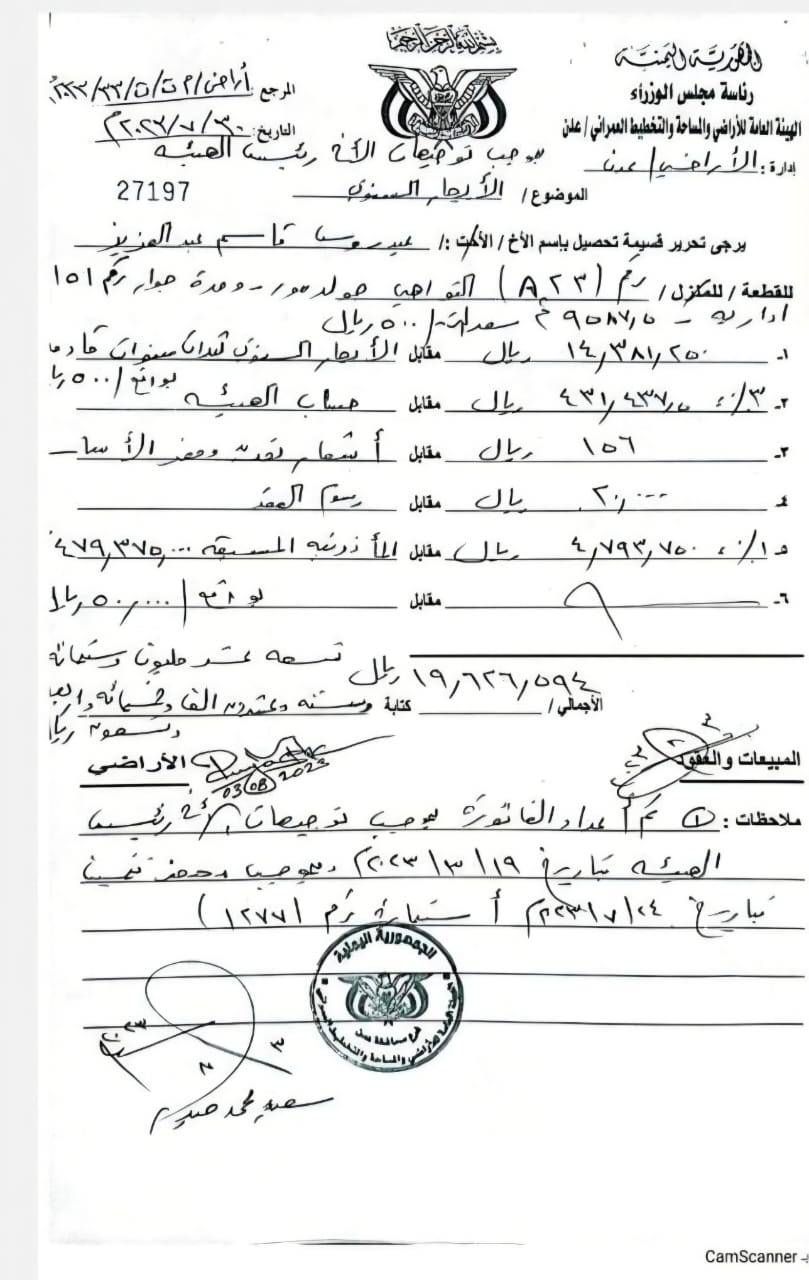 بسم الله الرحمن الرحيم
الجمهورية اليمنية
رئاسة مجلس الوزراء
الهيئة العامة للأراضي والمساحة والتخطيط العمراني / عدن
إدارة : الأراضي / عدن
المرجع : أراضي / م ت / ن / ٣٣ / ٢٠٢٣م
التاريخ : ٣٠ / ٧ / ٢٠٢٣م
بموجب توجيهات الأخ رئيس الهيئة
الموضوع / الأيجار السنوي
27197
يرجى تحرير قسيمة تحصيل بإسم الأخ / الأخت : / عيدروس قاسم عبدالعزيز
للقطعة / للمنزل / رقم (A ٢٣) التواهي جولدمور - وحدة جوار رقم ١٥١
ادارية - ٩٥٨٧,٥ م سعر المتر / ٥٠٠ ريال
١- ١٤,٣٨١,٢٥٠ ريال مقابل الأيجار السنوي ثلاث سنوات قادمة
بواقع / ٥٠٠ ريال
٢- ٣٪ ٤٣١,٤٣٧,٥ ريال مقابل حساب الهيئة
٣- ١٥٦ ريال مقابل
٤- ٢٠,٠٠٠ ريال مقابل رسوم العقد
٥- ١٠٪ ٤,٧٩٣,٧٥٠ ريال مقابل المأذونية المسبقة ٤٧٩,٣٧٥,٠٠٠
٦- مقابل بواقع / ٥٠,٠٠٠ ريال
الأجمالي / ١٩,٦٢٦,٥٩٤ ريال
كتابة تسعة عشر مليون وستمائة
وستة وعشرون الف وخمسمائة واربعة
وتسعون ريال
المبيعات والعقود
الأراضي
03/08/2023
ملاحظات : ١ تم أعداد الفاتورة بموجب توجيهات الأخ رئيس
الهيئة بتاريخ ١٩ / ٣ / ٢٠٢٣م وبموجب محضر تثمين
بتاريخ ٢٤ / ٧ / ٢٠٢٣م أستمارة رقم (١٢٧٧)
الجمهورية اليمنية
CamScanner